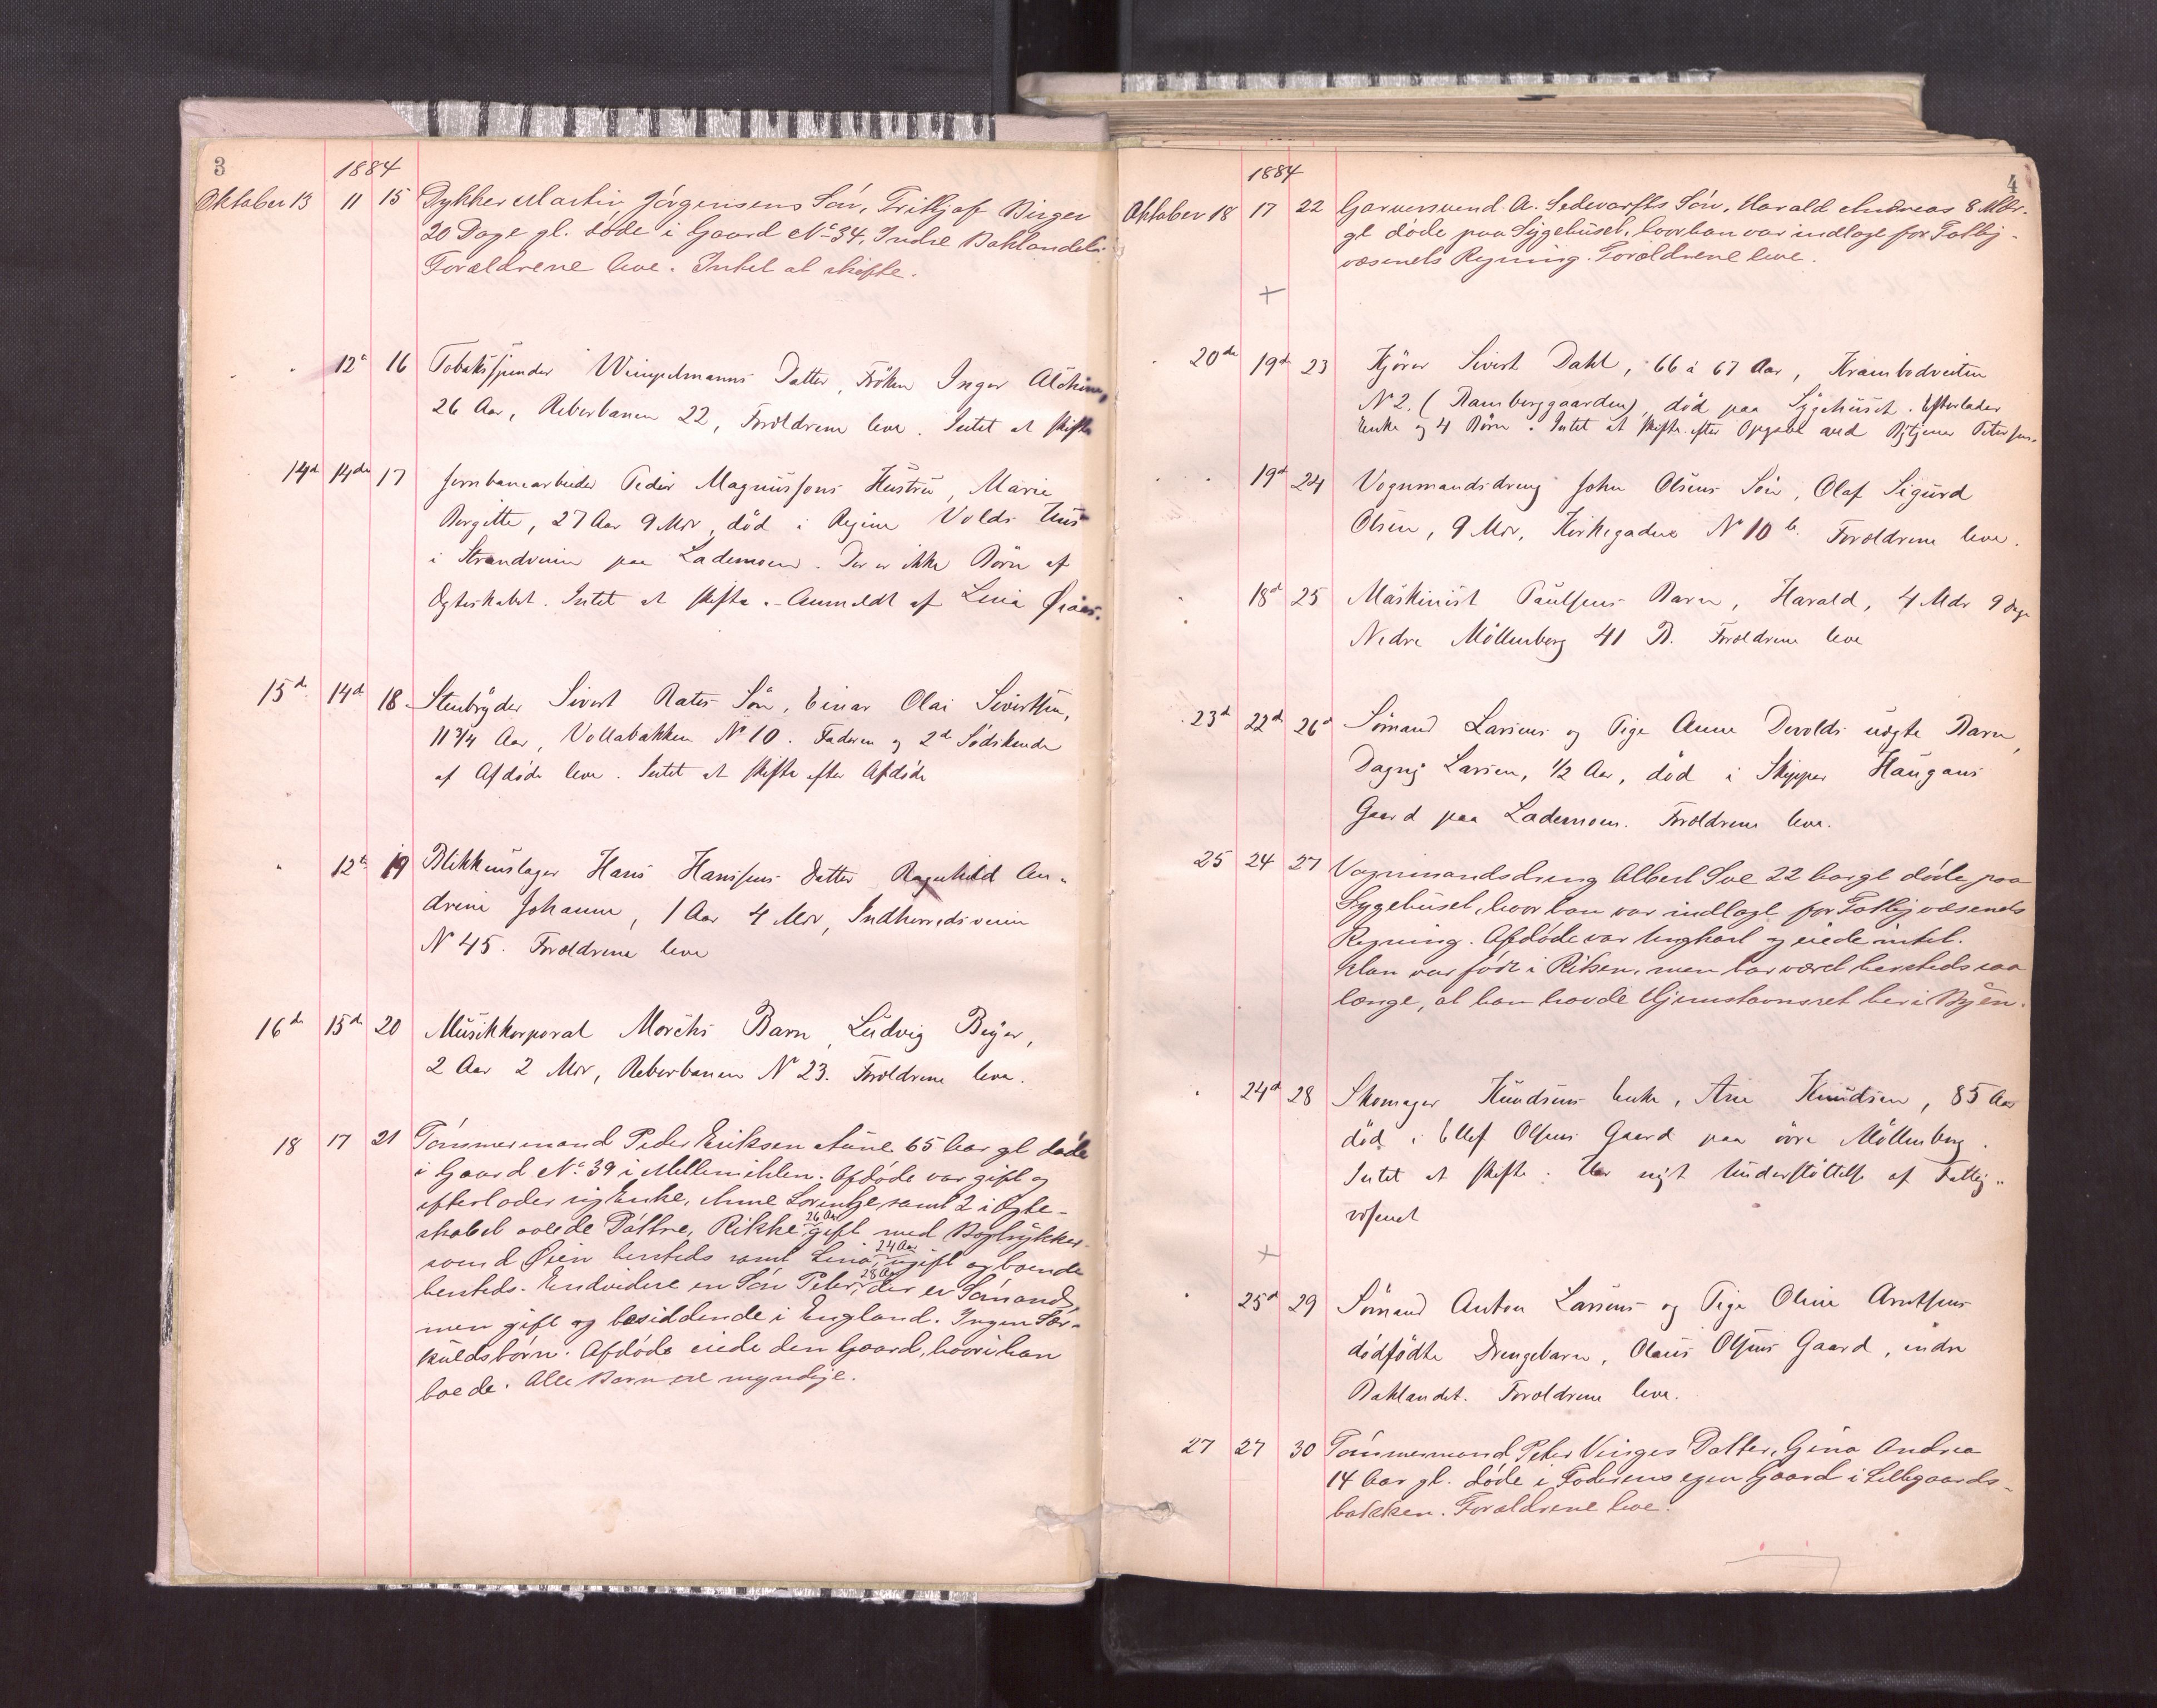 3
1884
Oktober 13 11 15 Dykker Martin Jörgensens Sön, Fritjof Birger
20 Dage gl. døde i Gaard No 34, Indre Baklandet.
Forældrene leve. Intet at skifte.
" " 12te 16 Tobaksspinder Wimpelmanns Datter, Fröken Inger
26 Aar, Reberbanen 22, Forældrene leve. Intet at skifte
14d 14de 17 Jernbanearbeider Peder Magnussons Hustru, Marie
Bergitte, 27 Aar 9 Mdr, död i Regine Volds Hus
i Strandveien paa Lademoen. Der er ikke Börn af
Egteskabet. Intet at skifte. - Anmeldt af Lina
15de 14d 18 Stenbryder Sivert Rates Sön, Einar Olai Sivertsen,
11 3/4 Aar, Vollabakken No 10. Faderen og 2de Södskende
af Afdöde leve. Intet at skifte efter Afdöde
" 12te 19 Blikkenslager Hans Hanssens Datter Ragnhild An-
drine Johanne, 1 Aar 4 Mdr, Indherredsveien
No 45. Forældrene leve
16de 15de 20 Musikkorporal Morchs Barn, Ludvig Beyer,
2 Aar 2 Mdr, Reberbanen No 23. Forældrene leve.
18 17 21 Tömmermand Peder Eriksen Aune 65 Aar gl døde
i Gaard No 39 i Mellemilen. Afdøde var gift og
efterlader sig Enke, Anne Lorentze samt 2 i Egte-
skabet avlede Döttre, Rikke 26 Aar gift med Bogtrykker-
svend Øien hersteds samt Lina, 24 Aar ugift og boende
hersteds. Endvidere en Sön Peter, 28 Aar der er Sömand,
men gift og bosiddende i England. Ingen Sær-
kuldsbörn. Afdöde eiede den Gaard, hvori han
boede. Alle Børn ere myndige.
4
1884
Oktober 18 17 22 Garversvend A. Sedevarfts Sön, Harald Andreas 8 Mdr.
gl døde paa Sygehuset, hvor han var indlagt for Fattig-
væsenets Regning. Forældrene leve.
+
" 20de 19d 23 Kjörer Sivert Dahl, 66 à 67 Aar, Krambodveiten
No 2. (Ramberggaarden), död paa Sygehuset. Efterlader
Enke og 4 Börn. Intet at skifte efter Opgave ved Petersen.
" " 19d 24 Vognmandsdreng John Olsens Sön, Olaf Sigurd
Olsen, 9 Mdr, Kirkegaden No 10 b. Forældrene leve.
" 18d 25 Maskinist Paulsens Barn, Harald, 4 Mdr 9 Dage
Nedre Möllenberg 41 B. Forældrene leve
23d 22d 26 Sömand Larsens og Pige Anne Devolds uægte Barn,
Dagny Larsen, 1/2 Aar, död i Skipper Haugans
Gaard paa Lademoen. Forældrene leve.
25 24 27 Vognmandsdreng Albert Soe 22 Aar gl døde paa
Sygehuset, hvor han var indlagt for Fattigvæsenets
Regning. Afdøde var Ungkarl og eiede intet.
Han var født i Rissen, men har været hersteds saa
længe, at han havde Hjemstavnsret her i Byen.
" 24d 28 Skomager Knudsens Enke, Ane Knudsen, 85 Aar
död i Ellef Olsens Gaard paa övre Möllenberg.
Intet at skifte. Har nydt Understöttelse af Fattig-
væsenet
+
" 25d 29 Sömand Anton Larsens og Pige Oline Arntsens
dödfödte Drengebarn, Olaus Olsens Gaard, indre
Baklandet. Forældrene leve.
27 27 30 Tömmermand Peter Vinges Datter, Gina Andrea
14 Aar gl. døde i Faderens egen Gaard i Lillegaards-
bakken. Forældrene leve.